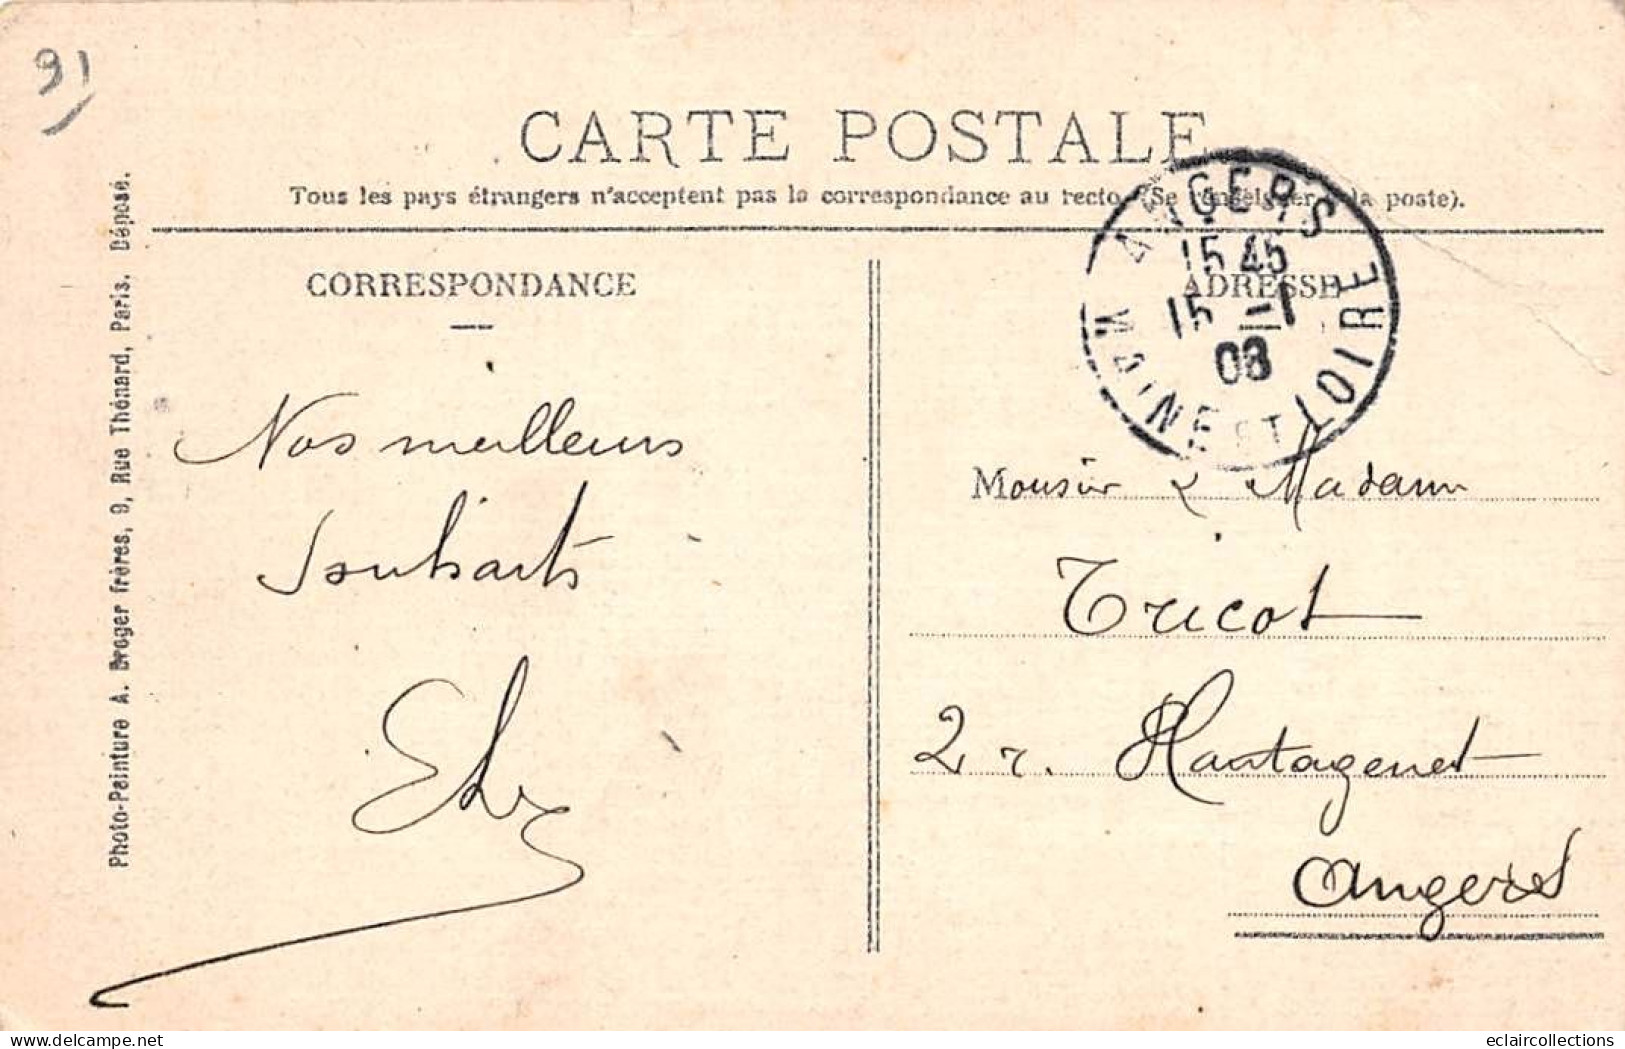 91
CARTE POSTALE
Tous les pays étrangers n'acceptent pas la correspondance au recto (Se renseigner à la poste).
CORRESPONDANCE
ADRESSE
ANGERS
15 45
15 -1
08
MAINE ET LOIRE
Nos meilleurs
souhaits
Monsieur & Madame
Tricot
2 r. Plantagenet
Angers
Photo-Peinture A. Breger frères, 9, Rue Thénard, Paris. Déposé.
eclaircollections